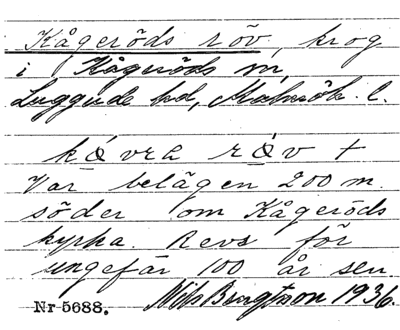 Kågeröds röv, krog
i Kågeröds sn,
Luggude hd, Malmöh. l.
kåvra röv +
Var belägen 200 m.
söder om Kågeröds
kyrka. Revs för
ungefär 100 år sen.
Nr 5688. Nils Bengtsson 1936.